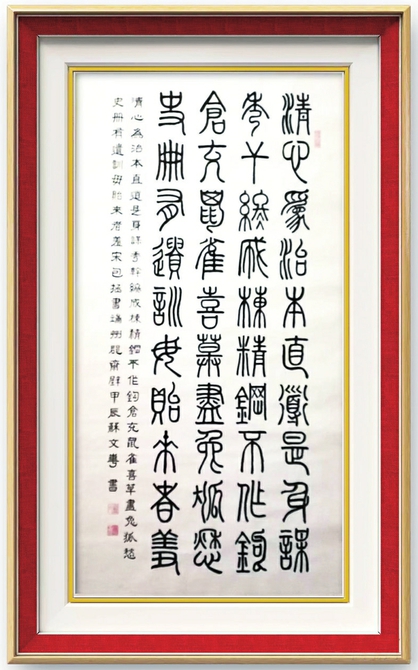 清心為治本直道是身謀
秀干終成棟精鋼不作鉤
倉充鼠雀喜草盡兔狐愁
史冊有遺訓毋貽來者羞
清心為治本直道是身謀秀幹終成棟精鋼不作鉤倉充鼠雀喜草盡兔狐愁
史冊有遺訓毋貽來者羞宋包拯書端州郡齋壁甲辰蘇文粵書